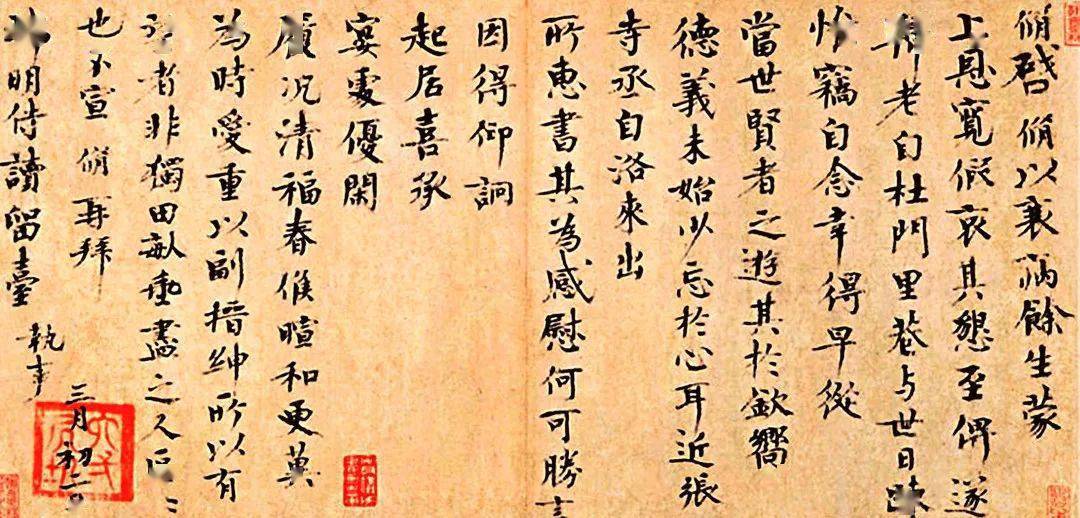 脩啓脩以衰病餘生蒙
上恩寬假哀其懇至俾遂
歸老自杜門里巷与世日疎
惟竊自念幸得早從
當世賢者之遊其於欽嚮
德義未始少忘於心耳近張
寺丞自洛來出
所惠書其為感慰何可勝言
因得仰詢
起居喜承
宴處優閑
履况清福春候暄和更冀
為時愛重以副搢紳所以有
望者非獨田畝垂盡之人區區
也不宣脩再拜
端明侍讀留臺 執事
三月初二日